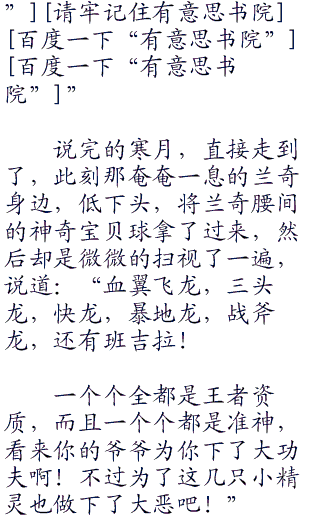 ”][请牢记住有意思书院]
[百度一下“有意思书院”]
[百度一下“有意思书
院”]”
说完的寒月，直接走到
了，此刻那奄奄一息的兰奇
身边，低下头，将兰奇腰间
的神奇宝贝球拿了过来，然
后却是微微的扫视了一遍，
说道：“血翼飞龙，三头
龙，快龙，暴地龙，战斧
龙，还有班吉拉！
一个个全都是王者资
质，而且一个个都是准神，
看来你的爷爷为你下了大功
夫啊！不过为了这几只小精
灵也做下了大恶吧！”